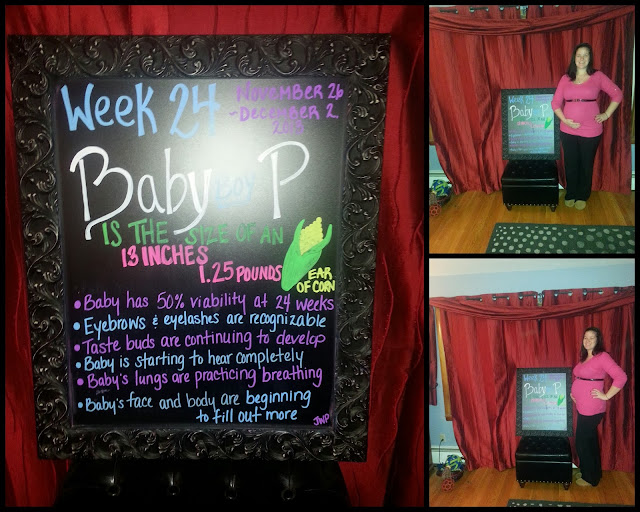 Week 24
November 26
~December 2
Baby Boy P
is the size of an
13 inches
1.25 pounds
ear
of corn
• Baby has 50% viability at 24 weeks
• Eyebrows & eyelashes are recognizable
• Taste buds are continuing to develop
• Baby is starting to hear completely
• Baby's lungs are practicing breathing
• Baby's face and body are beginning
to fill out more
JWP